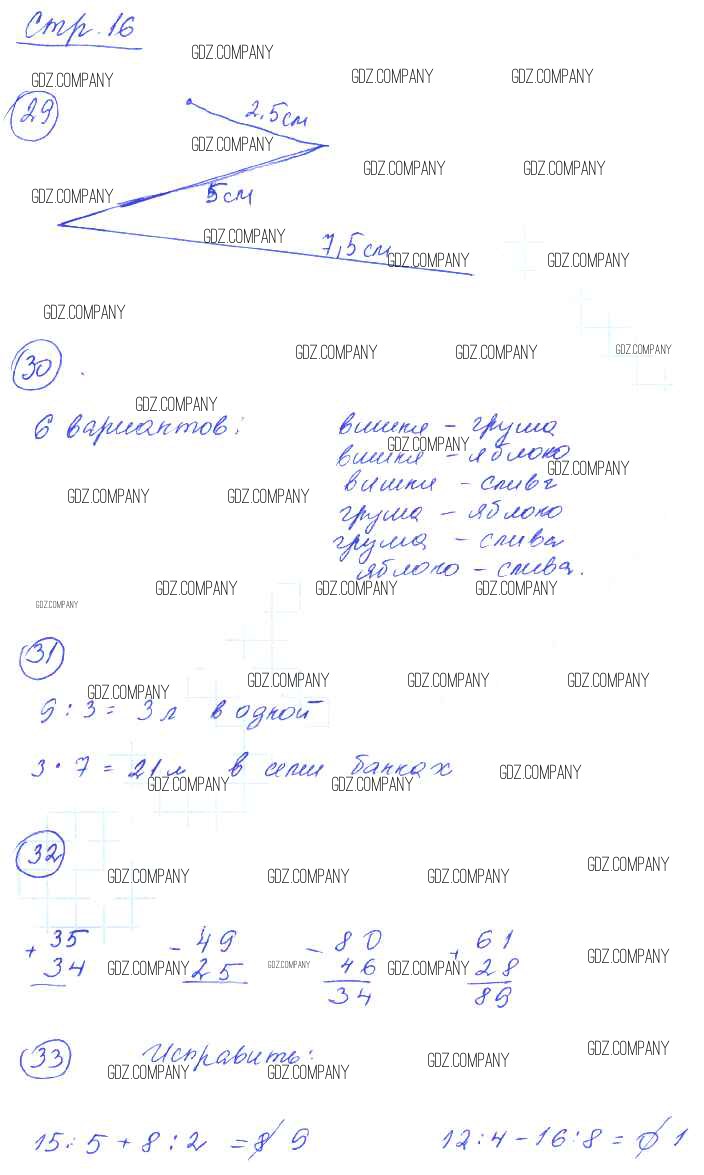 Стр. 16
GDZ.COMPANY
GDZ.COMPANY GDZ.COMPANY GDZ.COMPANY
29 2,5 см
GDZ.COMPANY
GDZ.COMPANY GDZ.COMPANY
GDZ.COMPANY 5 см
GDZ.COMPANY 7,5 см
GDZ.COMPANY GDZ.COMPANY
GDZ.COMPANY
30 GDZ.COMPANY GDZ.COMPANY GDZ.COMPANY
GDZ.COMPANY
6 вариантов: вишня - груша
GDZ.COMPANY
вишня - яблоко
GDZ.COMPANY
вишня - слива
GDZ.COMPANY GDZ.COMPANY
груша - яблоко
груша - слива
яблоко - слива.
GDZ.COMPANY GDZ.COMPANY GDZ.COMPANY
GDZ.COMPANY
31
GDZ.COMPANY GDZ.COMPANY GDZ.COMPANY GDZ.COMPANY
9 : 3 = 3 л в одной
3 · 7 = 21 л в семи банках
GDZ.COMPANY GDZ.COMPANY GDZ.COMPANY
32
GDZ.COMPANY GDZ.COMPANY GDZ.COMPANY GDZ.COMPANY
+ 35 - 49 - 80 + 61
34 25 46 28
34 89
GDZ.COMPANY GDZ.COMPANY GDZ.COMPANY GDZ.COMPANY
33 Исправить:
GDZ.COMPANY GDZ.COMPANY GDZ.COMPANY GDZ.COMPANY
15 : 5 + 8 : 2 = 8 9 12 : 4 - 16 : 8 = 0 1